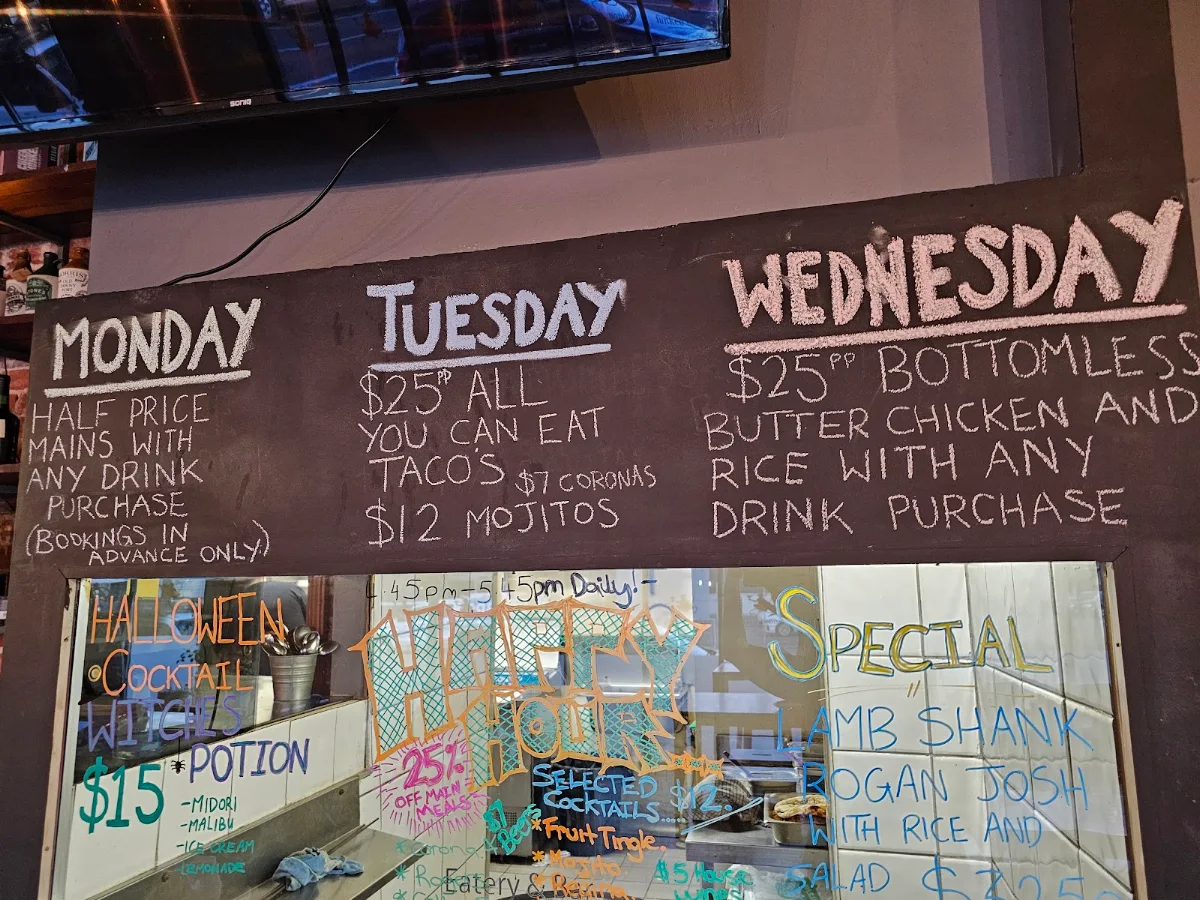 soniq
MONDAY
HALF PRICE
MAINS WITH
ANY DRINK
PURCHASE
(BOOKINGS IN
ADVANCE ONLY)
TUESDAY
$25PP ALL
YOU CAN EAT
TACO'S $7 CORONAS
$12 MOJITOS
WEDNESDAY
$25PP BOTTOMLESS
BUTTER CHICKEN AND
RICE WITH ANY
DRINK PURCHASE
HALLOWEEN
COCKTAIL
WITCHES
POTION
$15
-MIDORI
-MALIBU
-ICE CREAM
-LEMONADE
4.45pm-5.45pm Daily!-
HAPPY
HOUR
25%
OFF MAIN
MEALS
SELECTED
COCKTAILS..... $12.
$7 Beers
*Fruit Tingle,
*Mojito
*Corona
Eatery &
$5 House
Wines
SPECIAL
LAMB SHANK
ROGAN JOSH
WITH RICE AND
SALAD